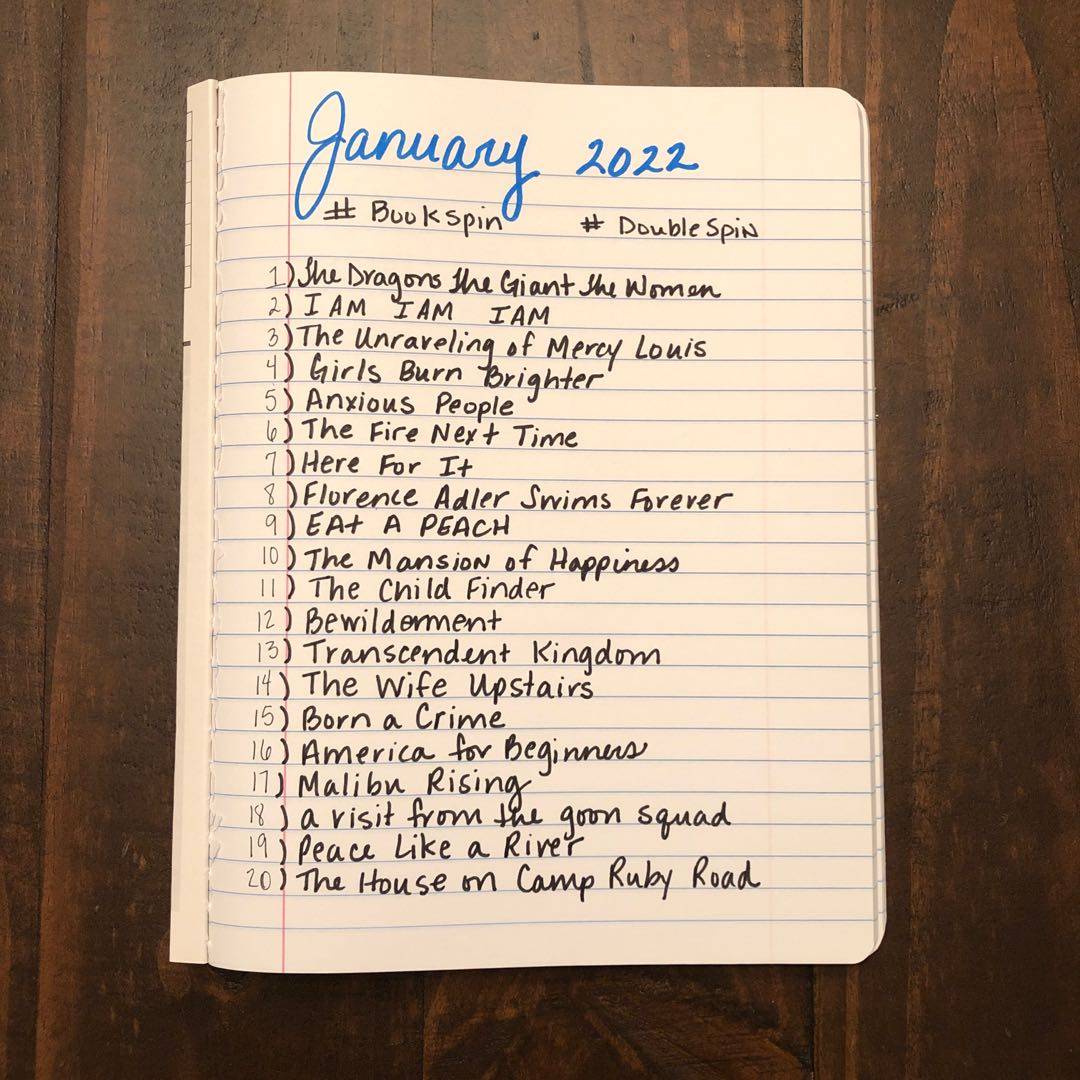 January 2022
# Bookspin # DoubleSpin
1) The Dragons The Giant The Women
2) I AM I AM I AM
3) The Unraveling of Mercy Louis
4) Girls Burn Brighter
5) Anxious People
6) The Fire Next Time
7) Here For It
8) Florence Adler Swims Forever
9) EAt A PEACH
10) The Mansion of Happiness
11) The Child Finder
12) Bewilderment
13) Transcendent Kingdom
14) The Wife Upstairs
15) Born a Crime
16) America for Beginners
17) Malibu Rising
18) a visit from the goon squad
19) Peace Like a River
20) The House on Camp Ruby Road